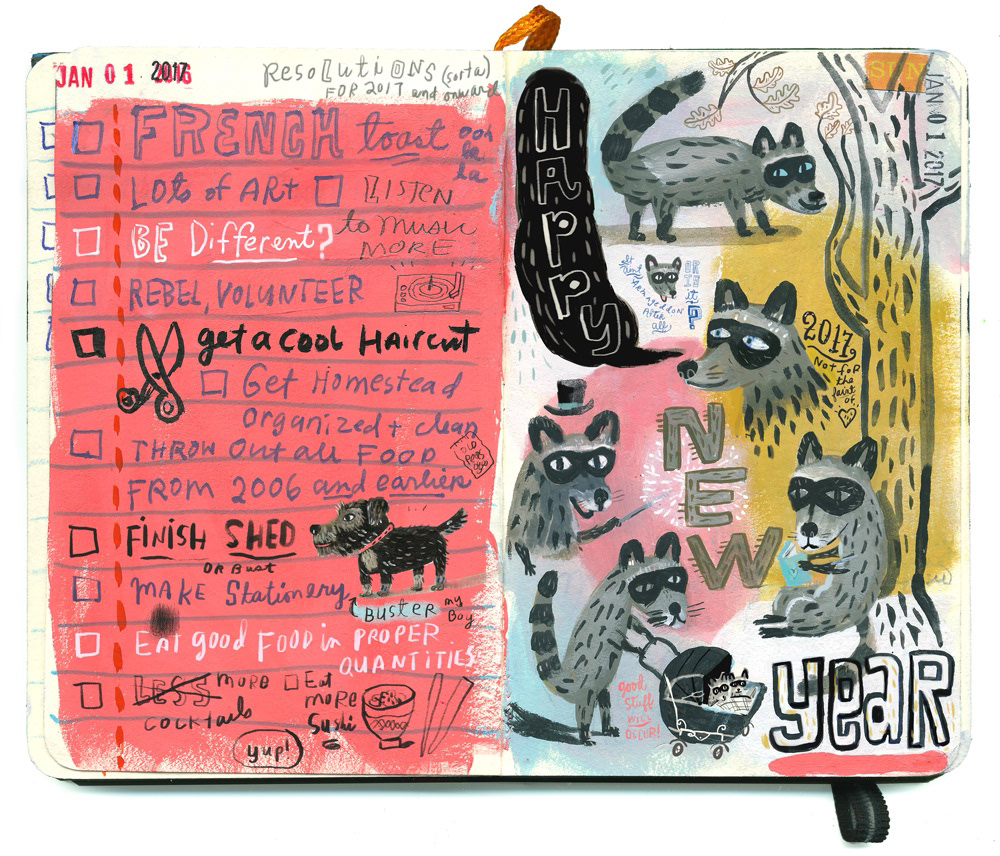 JAN 01 2017
Resolutions (sorta)
FOR 2017 and onward
FRENCH toast ooh
la
la
LOts of ARt LISTEN
to Music
MORE
BE Different?
REBEL, VOLUNTEER
get a cool Haircut
Get Homestead
Organized + clean
THROW Out all FOOD
FROM 2006 and earlier
FINISH SHED
OR Bust
MAKE Stationery
BUSTER my
Boy
Eat good FOOD in PROPER
QUANTITIES
LESS more
cocktails
yup!
Eat
more
Sushi
Happy
SUN
JAN 01 2017
It
aint
ARMAgeddon
After
all,
OR
IS
it?
2017
Not for
the
faint
of
NEW
good
stuff
will
OCCUR!
YEAR